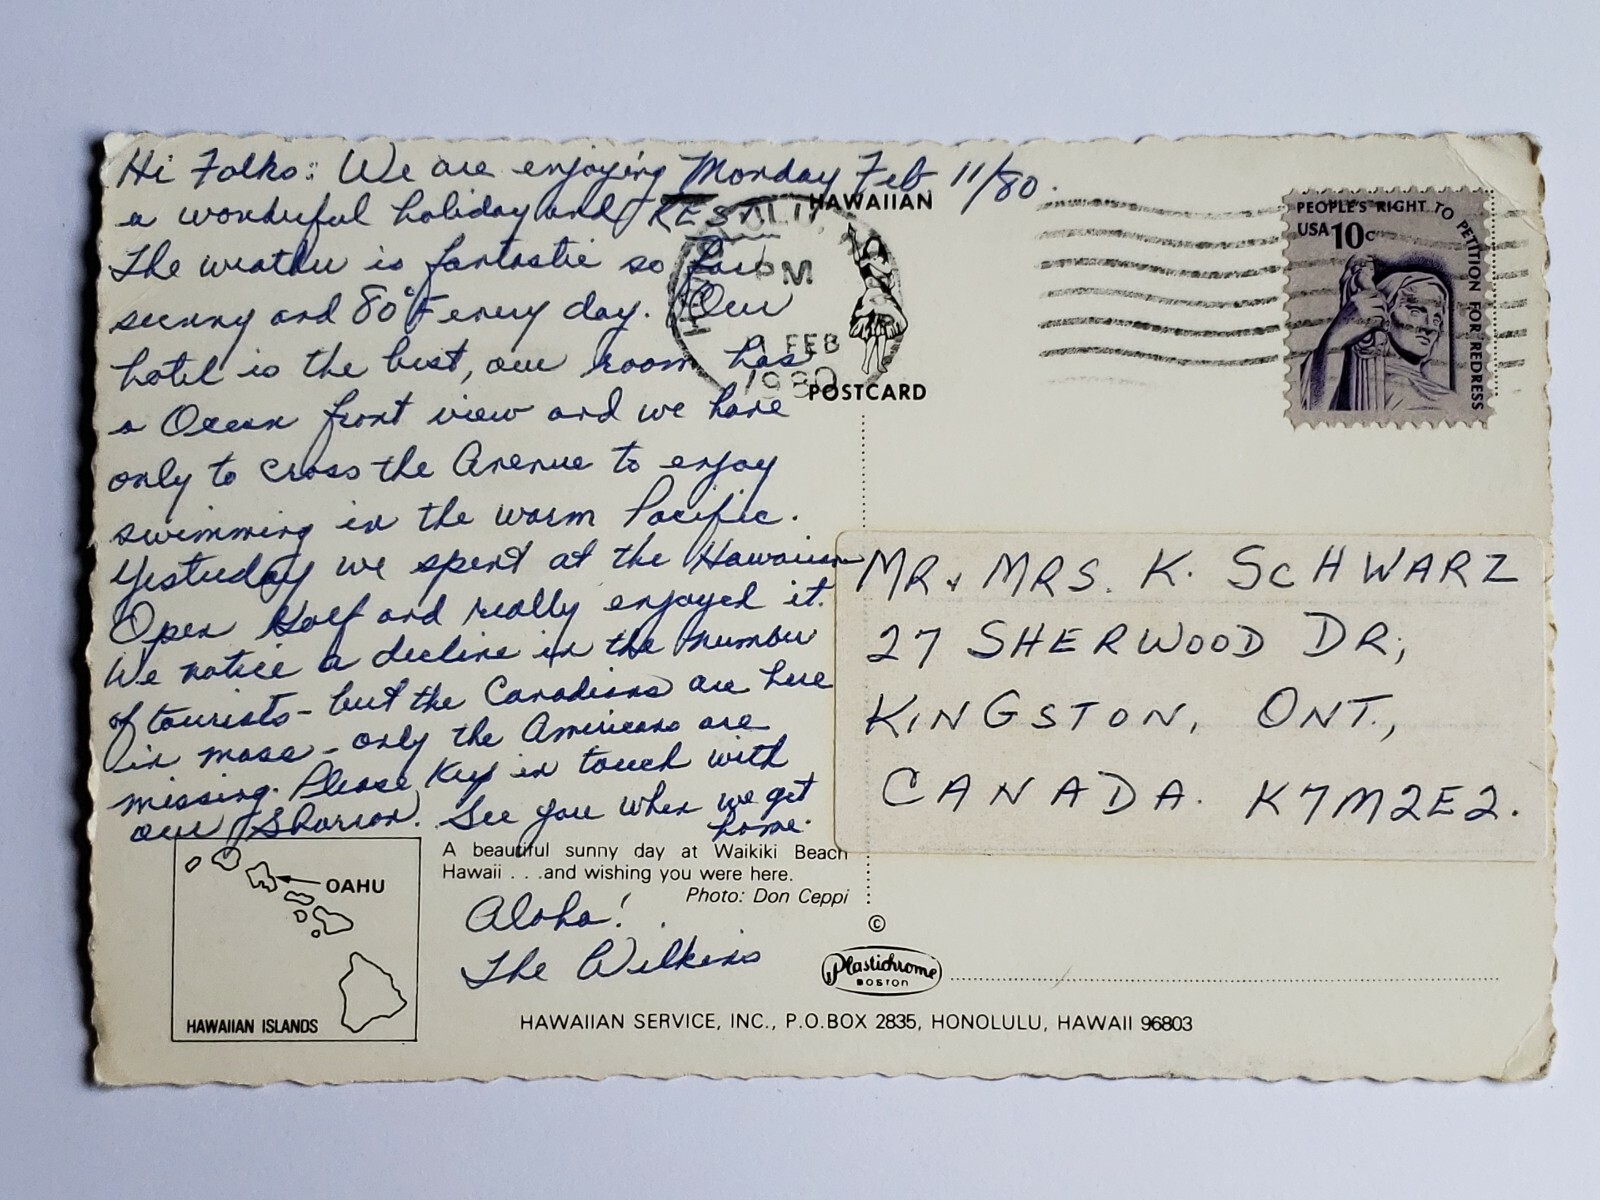 Monday Feb 11/80.
Hi Folks: We are enjoying
a wonderful holiday and REST
The weather is fantastic so far
sunny and 80°F every day. Our
hotel is the best, our room has
a Ocean front view and we have
only to cross the Avenue to enjoy
swimming in the warm Pacific.
Yesterday we spent at the Hawaiian
Open Golf and really enjoyed it.
We notice a decline in the number
of tourists - but the Canadians are here
in mass - only the Americans are
missing. Please Keep in touch with
our Sharron. See you when we get
home.
Aloha!
The Wilkins
A beautiful sunny day at Waikiki Beach
Hawaii . . .and wishing you were here.
Photo: Don Ceppi
OAHU
HAWAIIAN ISLANDS
HAWAIIAN
POSTCARD
PM
FEB
1980
PEOPLE'S RIGHT TO PETITION FOR REDRESS
USA 10c
MR & MRS. K. SCHWARZ
27 SHERWOOD DR,
KINGSTON, ONT.,
CANADA. K7M2E2.
©
Plastichrome
BOSTON
HAWAIIAN SERVICE, INC., P.O.BOX 2835, HONOLULU, HAWAII 96803